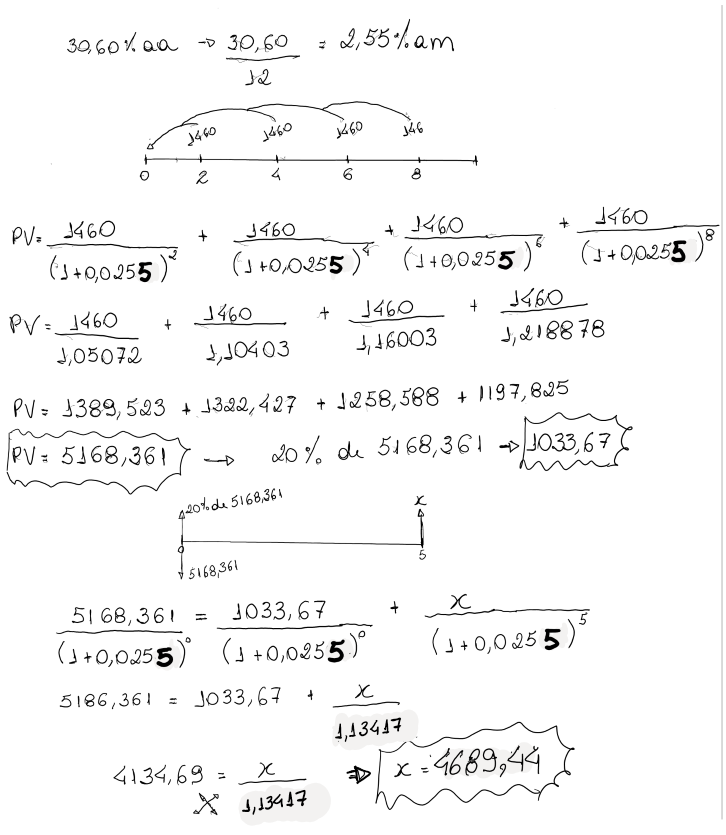 30,60% aa → 30,60/12 = 2,55% am
1460 1460 1460 146
0 2 4 6 8
PV= 1460/(1+0,0255)² + 1460/(1+0,0255)⁴ + 1460/(1+0,0255)⁶ + 1460/(1+0,0255)⁸
PV = 1460/1,05072 + 1460/1,10403 + 1460/1,16003 + 1460/1,218878
PV= 1389,523 + 1322,427 + 1258,588 + 1197,825
PV= 5168,361 → 20% de 5168,361 → 1033,67
20% de 5168,361 x
0 5
5168,361
5168,361/(1+0,0255)⁰ = 1033,67/(1+0,0255)⁰ + x/(1+0,0255)⁵
5186,361 = 1033,67 + x/1,13417
4134,69 = x/1,13417 ⇒ x = 4689,44